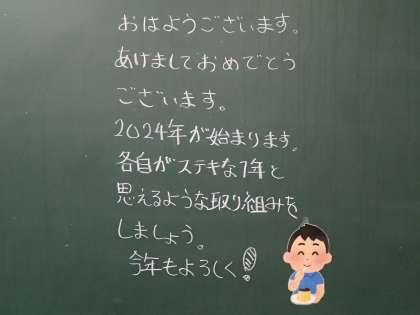 おはようございます。
あけましておめでとう
ございます。
2024年が始まります。
各自がステキな1年と
思えるような取り組みを
しましょう。
今年もよろしく!